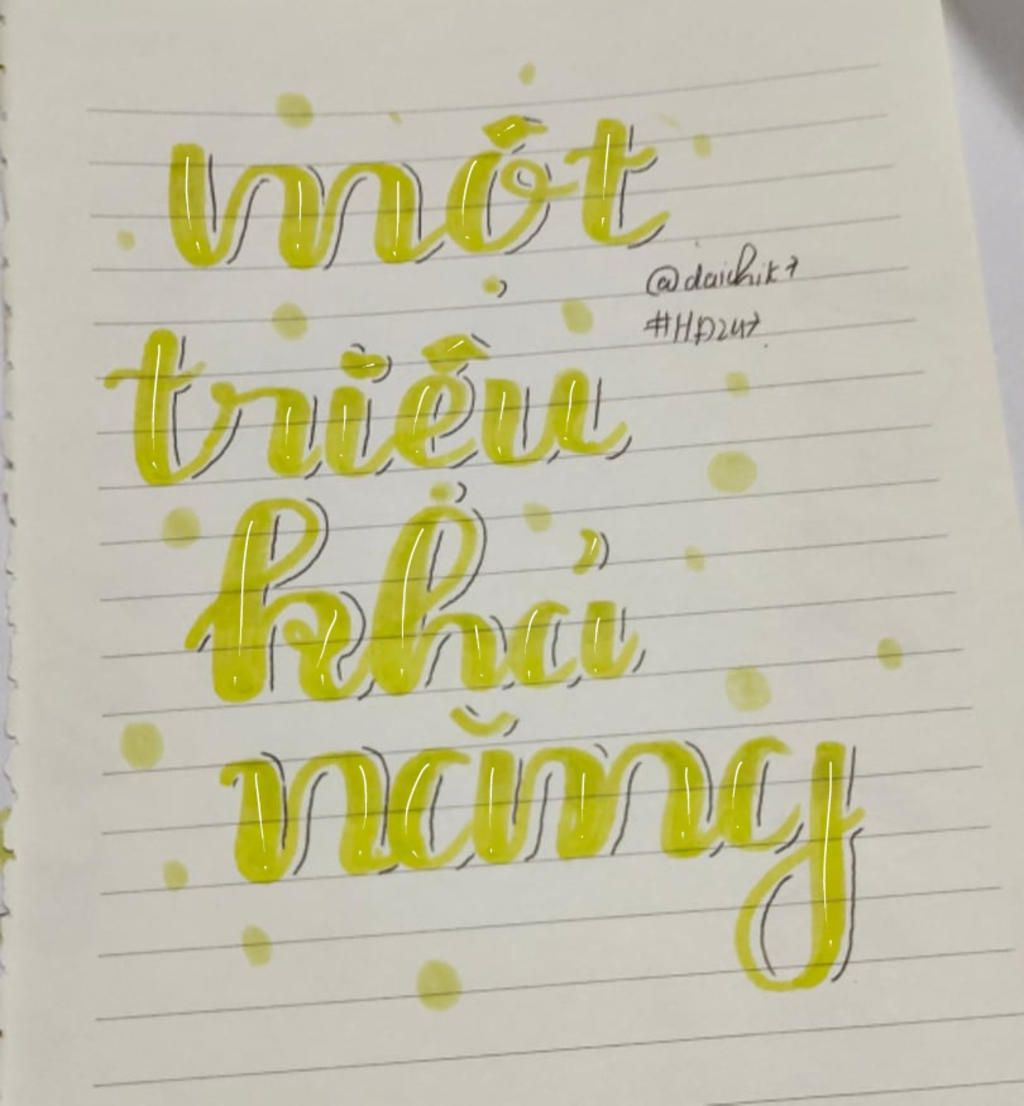 một
@daichik7
#HD247
triệu
khả
năng